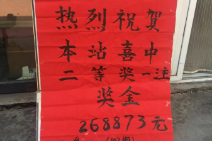 热烈祝贺
本站喜中
二等奖一注
奖金
268873元